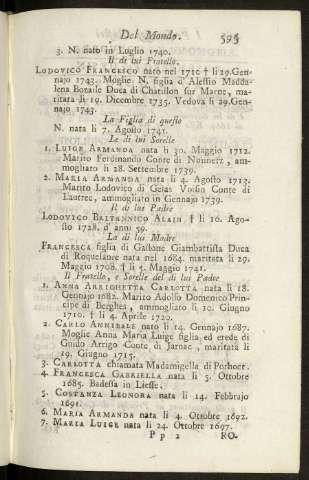 Del Mondo. 595
3. N. nato in Luglio 1740.
Il di lui Fratello.
LODOVICO FRANCESCO nato nel 1710 † li 29. Gen-
najo 1743. Moglie. N. figlia d'Alessio Madda-
lena Bozaile Duca di Chatillon sur Marne, ma-
ritata li 19. Dicembre 1735. Vedova li 29. Gen-
najo 1743.
La Figlia di questo
N. nata li 7. Agosto 1741.
Le di lui Sorelle
1. LUIGE ARMANDA nata li 30. Maggio 1712.
Marito Ferdinando Conte di Nonnerr, am-
mogliato li 28. Settembre 1739.
2. MARIA ARMANDA nata li 4. Agosto 1713.
Marito Lodovico di Gelas Voisin Conte di
Lautrec, ammogliato in Gennajo 1739.
Il di lui Padre
LODOVICO BRITANNICO ALAIN † li 10. Ago-
sto 1728. d' anni 59.
La di lui Madre
FRANCESCA figlia di Gastone Giambattista Duca
di Roquelaure nata nel 1684. maritata li 29.
Maggio 1708. † li 5. Maggio 1741.
Il Fratello, e Sorelle del di lui Padre
1. ANNA ARRIGHETTA CARLOTTA nata li 18.
Gennajo 1682. Marito Adolfo Domenico Prin-
cipe di Berghes, ammogliato li 10. Giugno
1710. † li 4. Aprile 1720.
2. CARLO ANNIBALE nato li 14. Gennajo 1687.
Moglie Anna Maria Luige figlia ed erede di
Guido Arrigo Conte di Jarnac, maritata li
19. Giugno 1715.
3. CARLOTTA chiamata Madamigella di Porhoet.
4. FRANCESCA GABRIELLA nata li 5. Ottobre
1685. Badessa in Liesse.
5. COSTANZA LEONORA nata li 14. Febbrajo
1691.
6. MARIA ARMANDA nata li 4. Ottobre 1692.
7. MARIA LUIGE nata li 24. Ottobre 1697.
P p 2 RO.